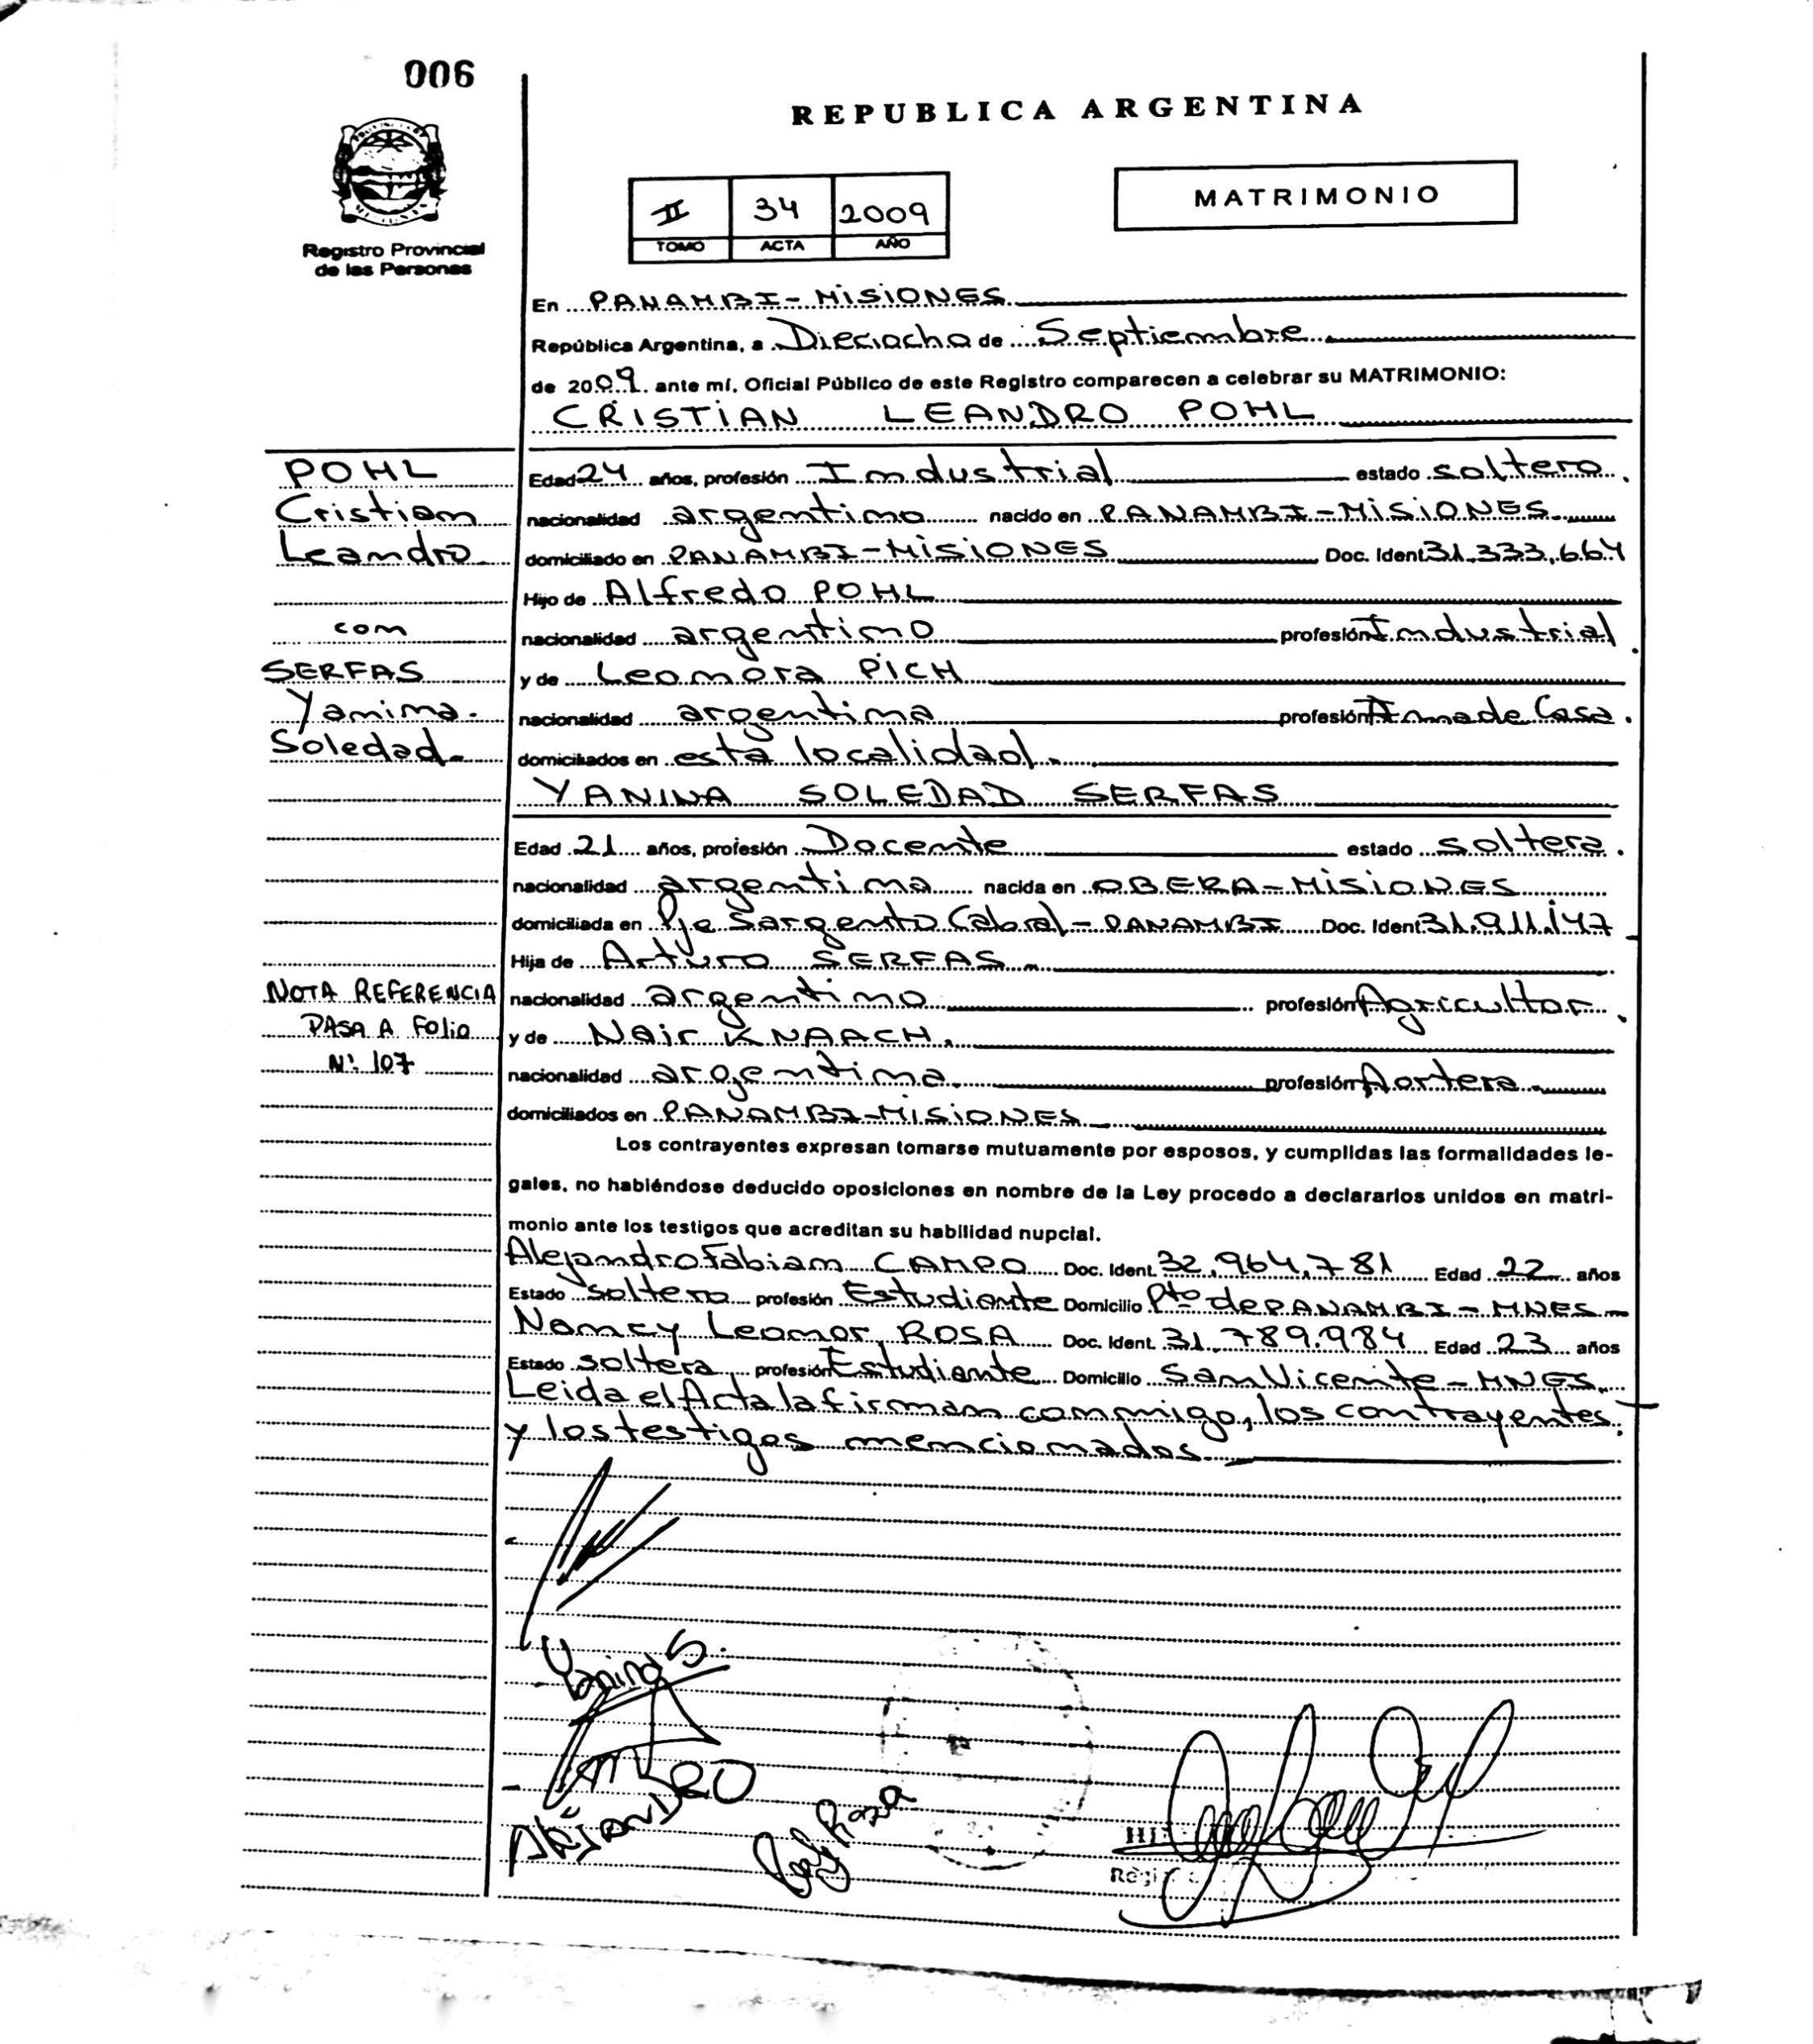 006
REPUBLICA ARGENTINA
MATRIMONIO
II 34 2009
TOMO ACTA AÑO
Registro Provincial
de las Personas
En PANAMBI - MISIONES
República Argentina, a Dieciocho de Septiembre
de 2009 ante mí, Oficial Público de este Registro comparecen a celebrar su MATRIMONIO:
CRISTIAN LEANDRO POHL
POHL
Cristian
Leandro
con
SERFAS
Yanina
Soledad
NOTA REFERENCIA
PASA A Folio
Nº 107
Edad 24 años, profesión Industrial estado soltero.
nacionalidad argentino nacido en PANAMBI - MISIONES
domiciliado en PANAMBI - MISIONES Doc. Ident. 31.333.664
Hijo de Alfredo POHL
nacionalidad argentino profesión Industrial.
y de Leonora PICH
nacionalidad argentina profesión Ama de Casa.
domiciliados en esta localidad.
YANINA SOLEDAD SERFAS
Edad 21 años, profesión Docente estado soltera.
nacionalidad argentina nacida en OBERA - MISIONES
domiciliada en Pje Sargento Cabral - PANAMBI Doc. Ident. 31.911.147
Hija de Arturo SERFAS
nacionalidad argentino profesión Agricultor.
y de Nair KNAACH.
nacionalidad argentina. profesión Portera.
domiciliados en PANAMBI - MISIONES
Los contrayentes expresan tomarse mutuamente por esposos, y cumplidas las formalidades le-
gales, no habiéndose deducido oposiciones en nombre de la Ley procedo a declararlos unidos en matri-
monio ante los testigos que acreditan su habilidad nupcial.
Alejandro Fabian CAMPO Doc. Ident. 32.964.781 Edad 22 años
Estado soltero profesión Estudiante Domicilio Pto de PANAMBI - MNES -
Nancy Leonor ROSA Doc. Ident. 31.789.984 Edad 23 años
Estado soltera profesión Estudiante Domicilio San Vicente - MNES.
Leida el Acta la firman conmigo, los contrayentes
y los testigos mencionados.
Yanina S.